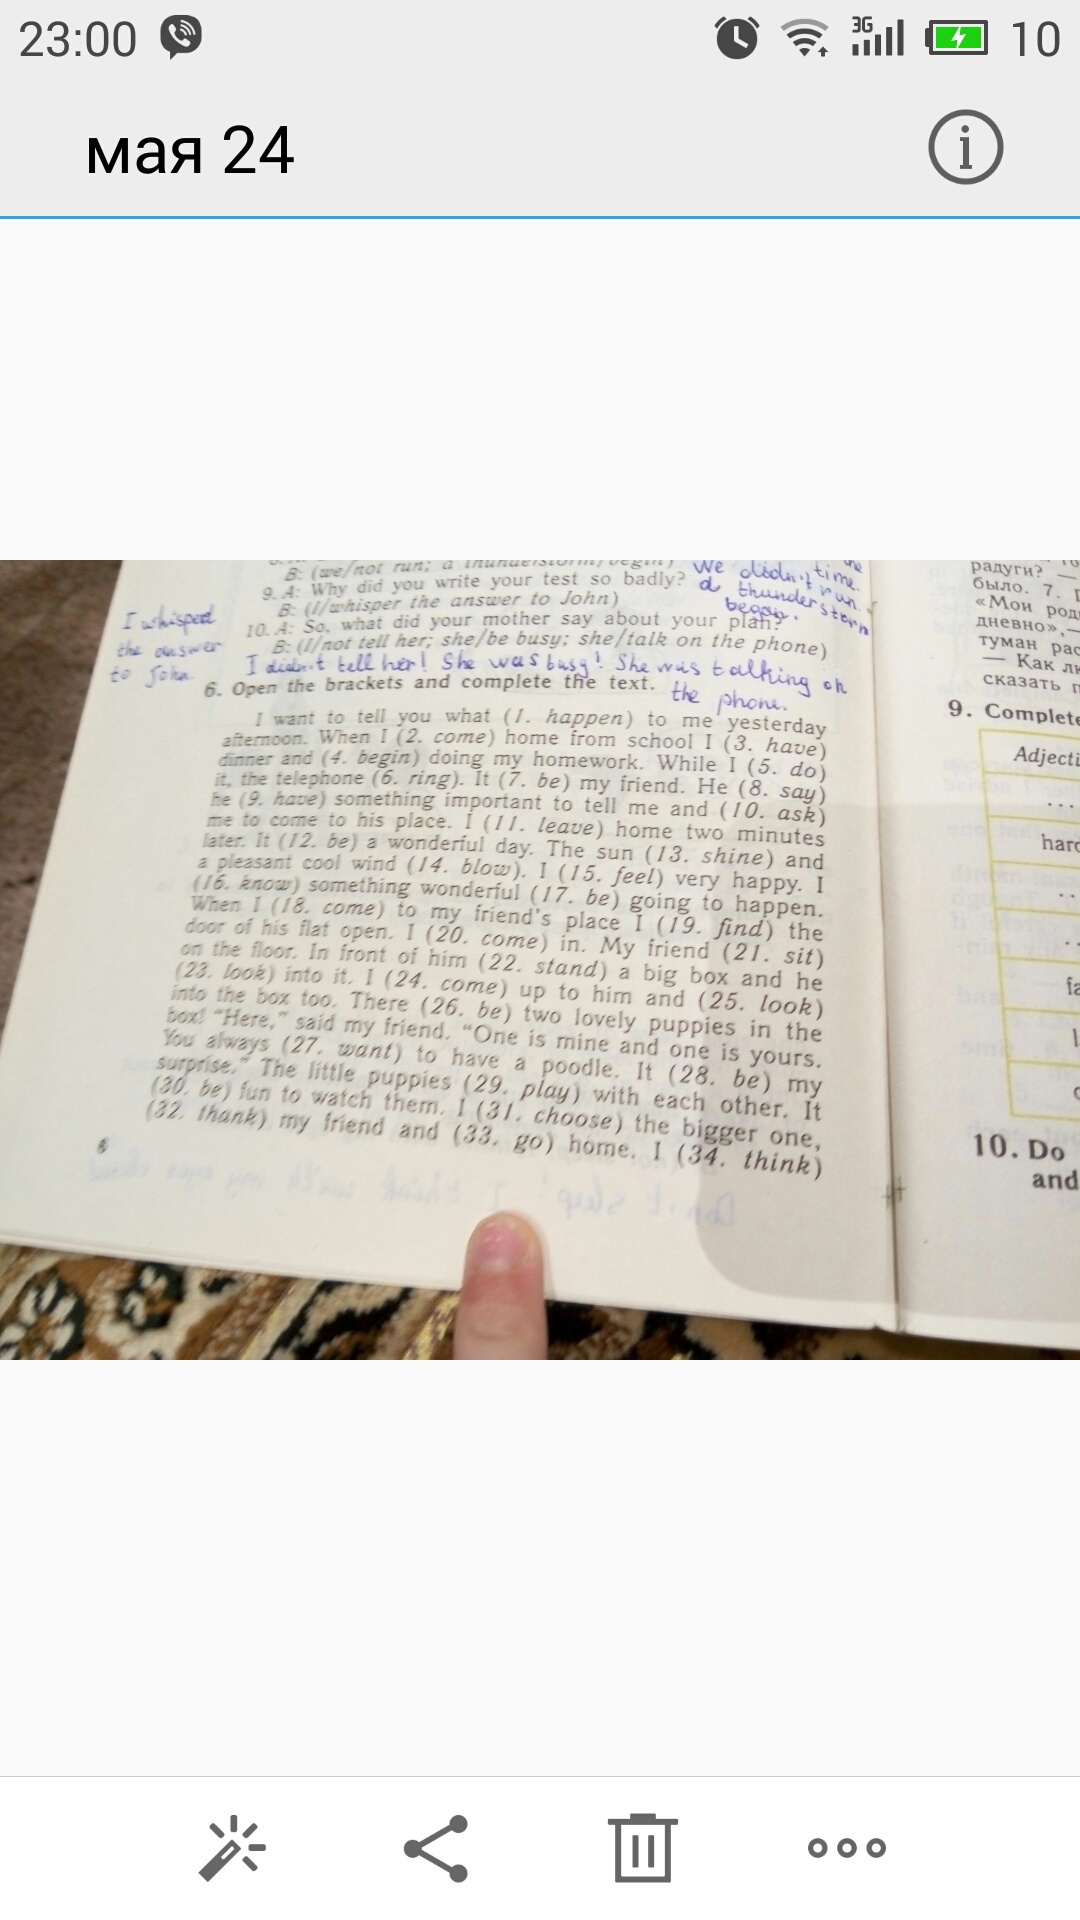 23:00 3G 10
мая 24
B: (we/not run; a thunderstorm/begin) We didn't run.
time.
9. A: Why did you write your test so badly? a thunderstorm
B: (I/whisper the answer to John) began.
I whispered
the answer
to John
10. A: So, what did your mother say about your plan?
B: (I/not tell her; she/be busy; she/talk on the phone)
I didn't tell her! She was busy! She was talking on
the phone.
6. Open the brackets and complete the text.
I want to tell you what (1. happen) to me yesterday
afternoon. When I (2. come) home from school I (3. have)
dinner and (4. begin) doing my homework. While I (5. do)
it, the telephone (6. ring). It (7. be) my friend. He (8. say)
he (9. have) something important to tell me and (10. ask)
me to come to his place. I (11. leave) home two minutes
later. It (12. be) a wonderful day. The sun (13. shine) and
a pleasant cool wind (14. blow). I (15. feel) very happy. I
(16. know) something wonderful (17. be) going to happen.
When I (18. come) to my friend's place I (19. find) the
door of his flat open. I (20. come) in. My friend (21. sit)
on the floor. In front of him (22. stand) a big box and he
(23. look) into it. I (24. come) up to him and (25. look)
into the box too. There (26. be) two lovely puppies in the
box! “Here,” said my friend. “One is mine and one is yours.
You always (27. want) to have a poodle. It (28. be) my
surprise.” The little puppies (29. play) with each other. It
(30. be) fun to watch them. I (31. choose) the bigger one,
(32. thank) my friend and (33. go) home. I (34. think)
6
радуги? —
было. 7.
«Мои
дневно»,—
туман
— Как
сказать
9. Complete
...
10. Do
and